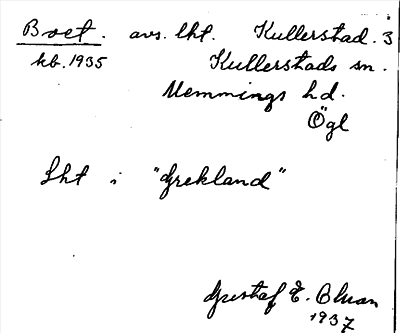 Boet. avs. lht. Kullerstad. 3
kb. 1935 Kullerstads sn.
Memmings hd.
Ögl
Lht i "Grekland"
Gustaf E. Bluan
1937